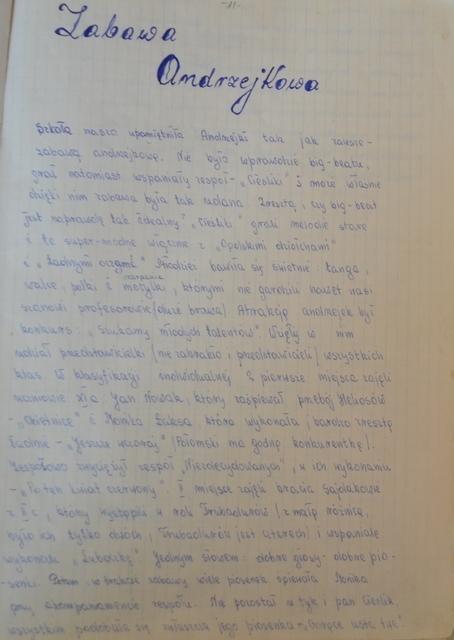 -11-
Zabawa
Andrzejkowa
Szkoła nasza upamiętniła Andrzejki tak jak zawsze -
zabawą andrzejkową. Nie było wprawdzie big-beatu,
grał natomiast wspaniały zespół - „Cieśliki” i może właśnie
dzięki nim zabawa była tak udana. Zresztą, czy big-beat
jest naprawdę tak idealny? „Cieśliki” grali melodie stare
i te super-modne włącznie z „Opolskimi dziołchami”
i „Ładnymi oczami”. Młodzież bawiła się świetnie: tanga,
walce, polki i mazurki, którymi nie gardzili nawet nasi
szanowni profesorowie /duże brawa/. Atrakcją andrzejek był
konkurs: „szukamy młodych talentów”. Wzięły w nim
udział przedstawicielki /nie zabrakło i przedstawicieli/ wszystkich
klas. W klasyfikacji indywidualnej 2 pierwsze miejsca zajęli
uczniowie XIa Jan Nowak, który zaśpiewał przebój Heliosów
- „Obietnice” i Monika Saksa która wykonała /bardzo zresztą
ładnie - „Jeszcze wczoraj” /Połomski ma godną konkurentkę/.
Zespołowo zwyciężył zespół „Niezdecydowanych”, w ich wykonaniu
- „Po ten kwiat czerwony”. II miejsce zajęli bracia
z II c, którzy wystąpili w roli Trubadurów /z małą różnicą,
było ich tylko dwóch, Trubadurów jest czterech/ i wspaniale
wykonali „Lubockę”. Jednym słowem: dobre głosy - dobre pio-
senki. Potem, w trakcie zabawy wiele piosenek śpiewała Monika
przy akompaniamencie zespołu. Nie pozostał w tyle i pan Cieślik,
wszystkim podobała się zwłaszcza jego piosenka - „Gorące usta twe”.